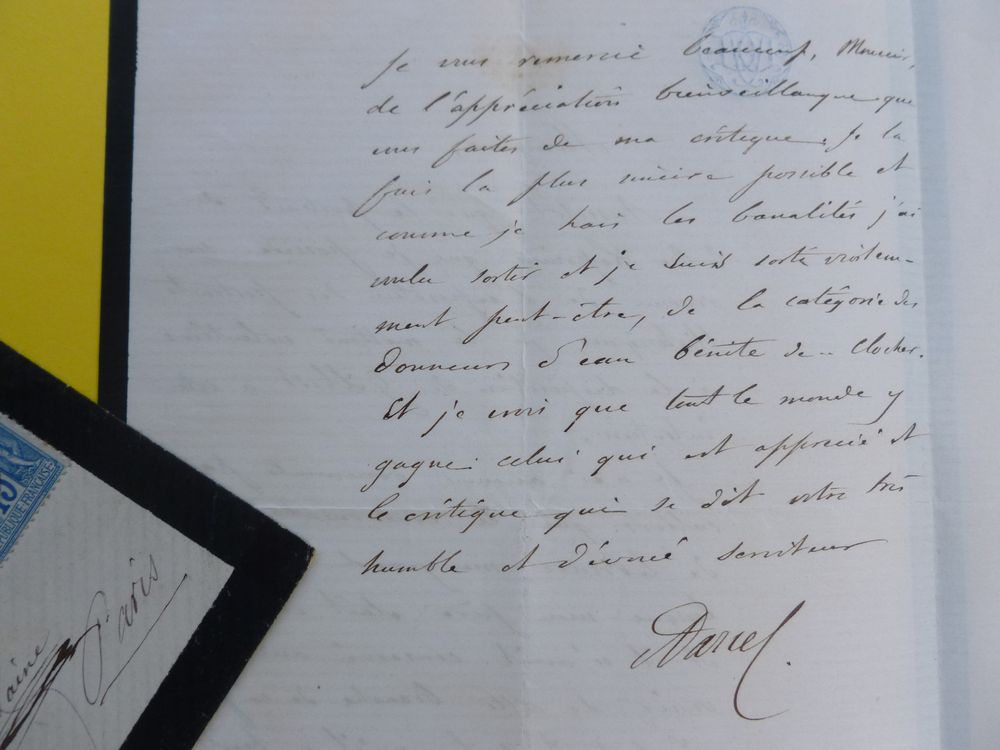 Je vous remercie beaucoup, Monsieur,
de l'appréciation bienveillante que
vous faites de ma critique. Je la
fais la plus sincère possible et
comme je hais les banalités j'ai
voulu sortir et je suis sorti violem-
ment peut-être, de la catégorie des
donneurs d'eau bénite de .. clocher.
Et je crois que tout le monde y
gagne: celui qui est apprécié et
le critique qui se dit votre très
humble et dévoué serviteur
ADarcel.
15
RÉPUBLIQUE FRANÇAISE
Paris